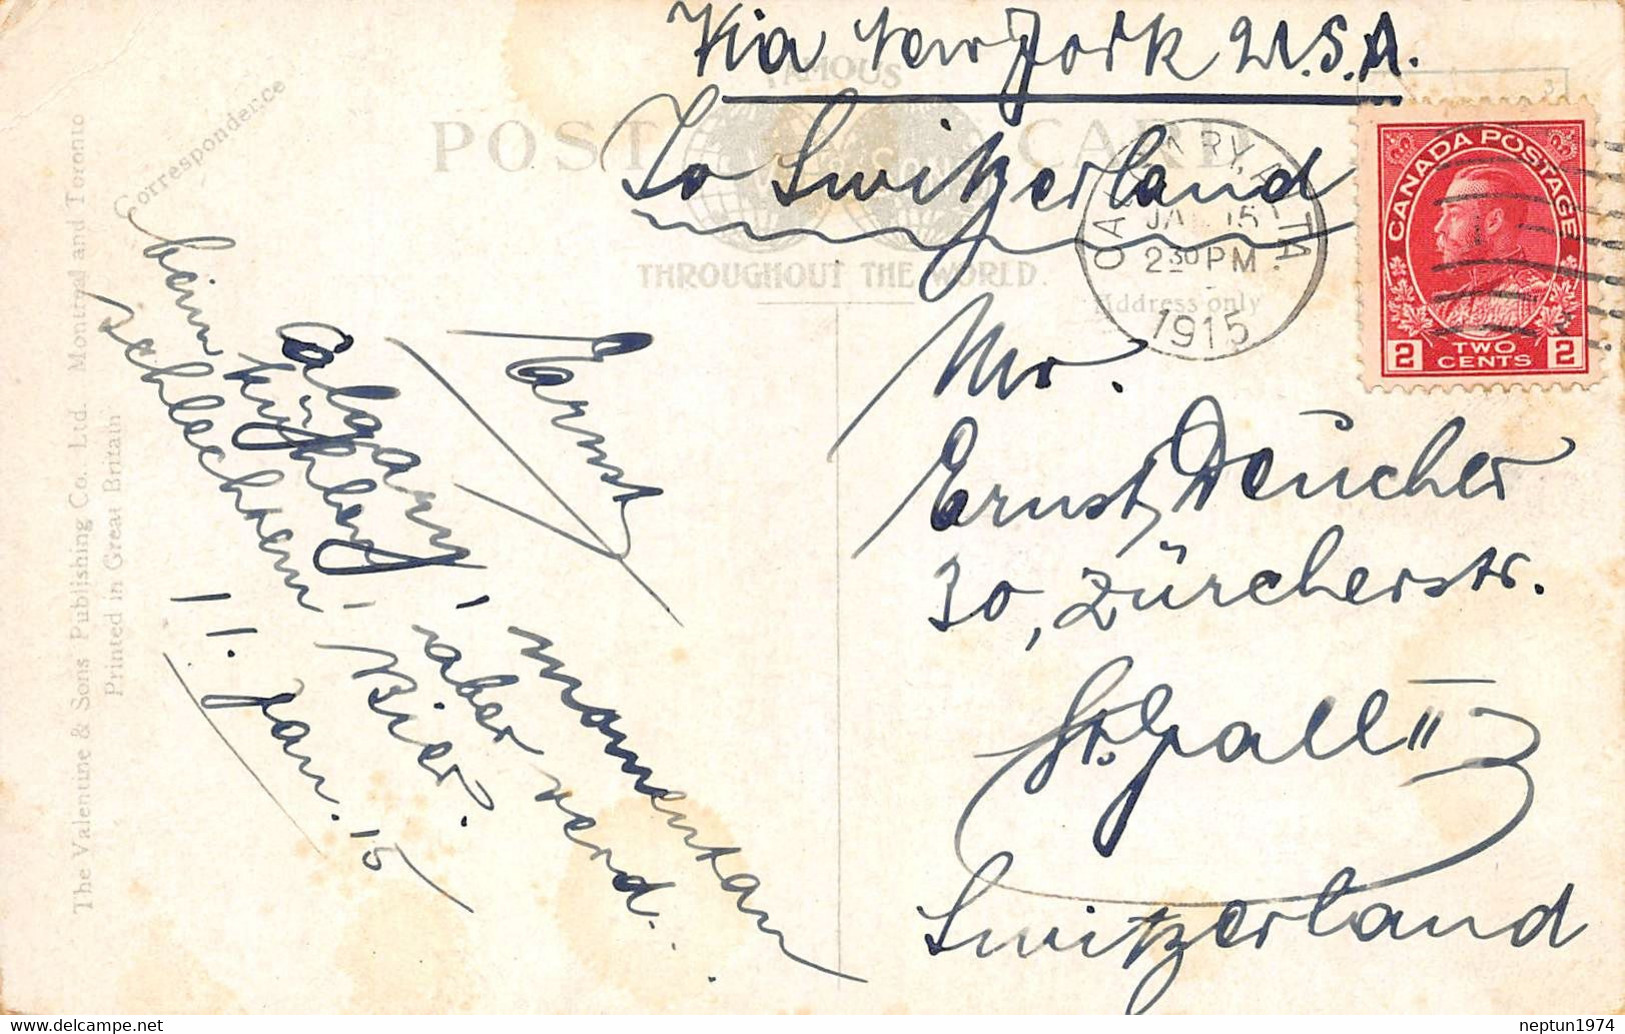 Via New York U.S.A.
To Switzerland
FAMOUS
POST CARD
THROUGHOUT THE WORLD.
Correspondence
Address only
CALGARY, ALTA
JA 15
2 30 PM
1915
CANADA POSTAGE
2 TWO CENTS 2
Mr.
Ernst Deücher
30, Zürcherstr.
St. Gall II
Switzerland
Calgary, momentan
aber verd..
beim
schlechtem Bier.
11. Jan. 15
Ernst
The Valentine & Sons Publishing Co. Ltd. Montreal and Toronto
Printed in Great Britain
neptun1974